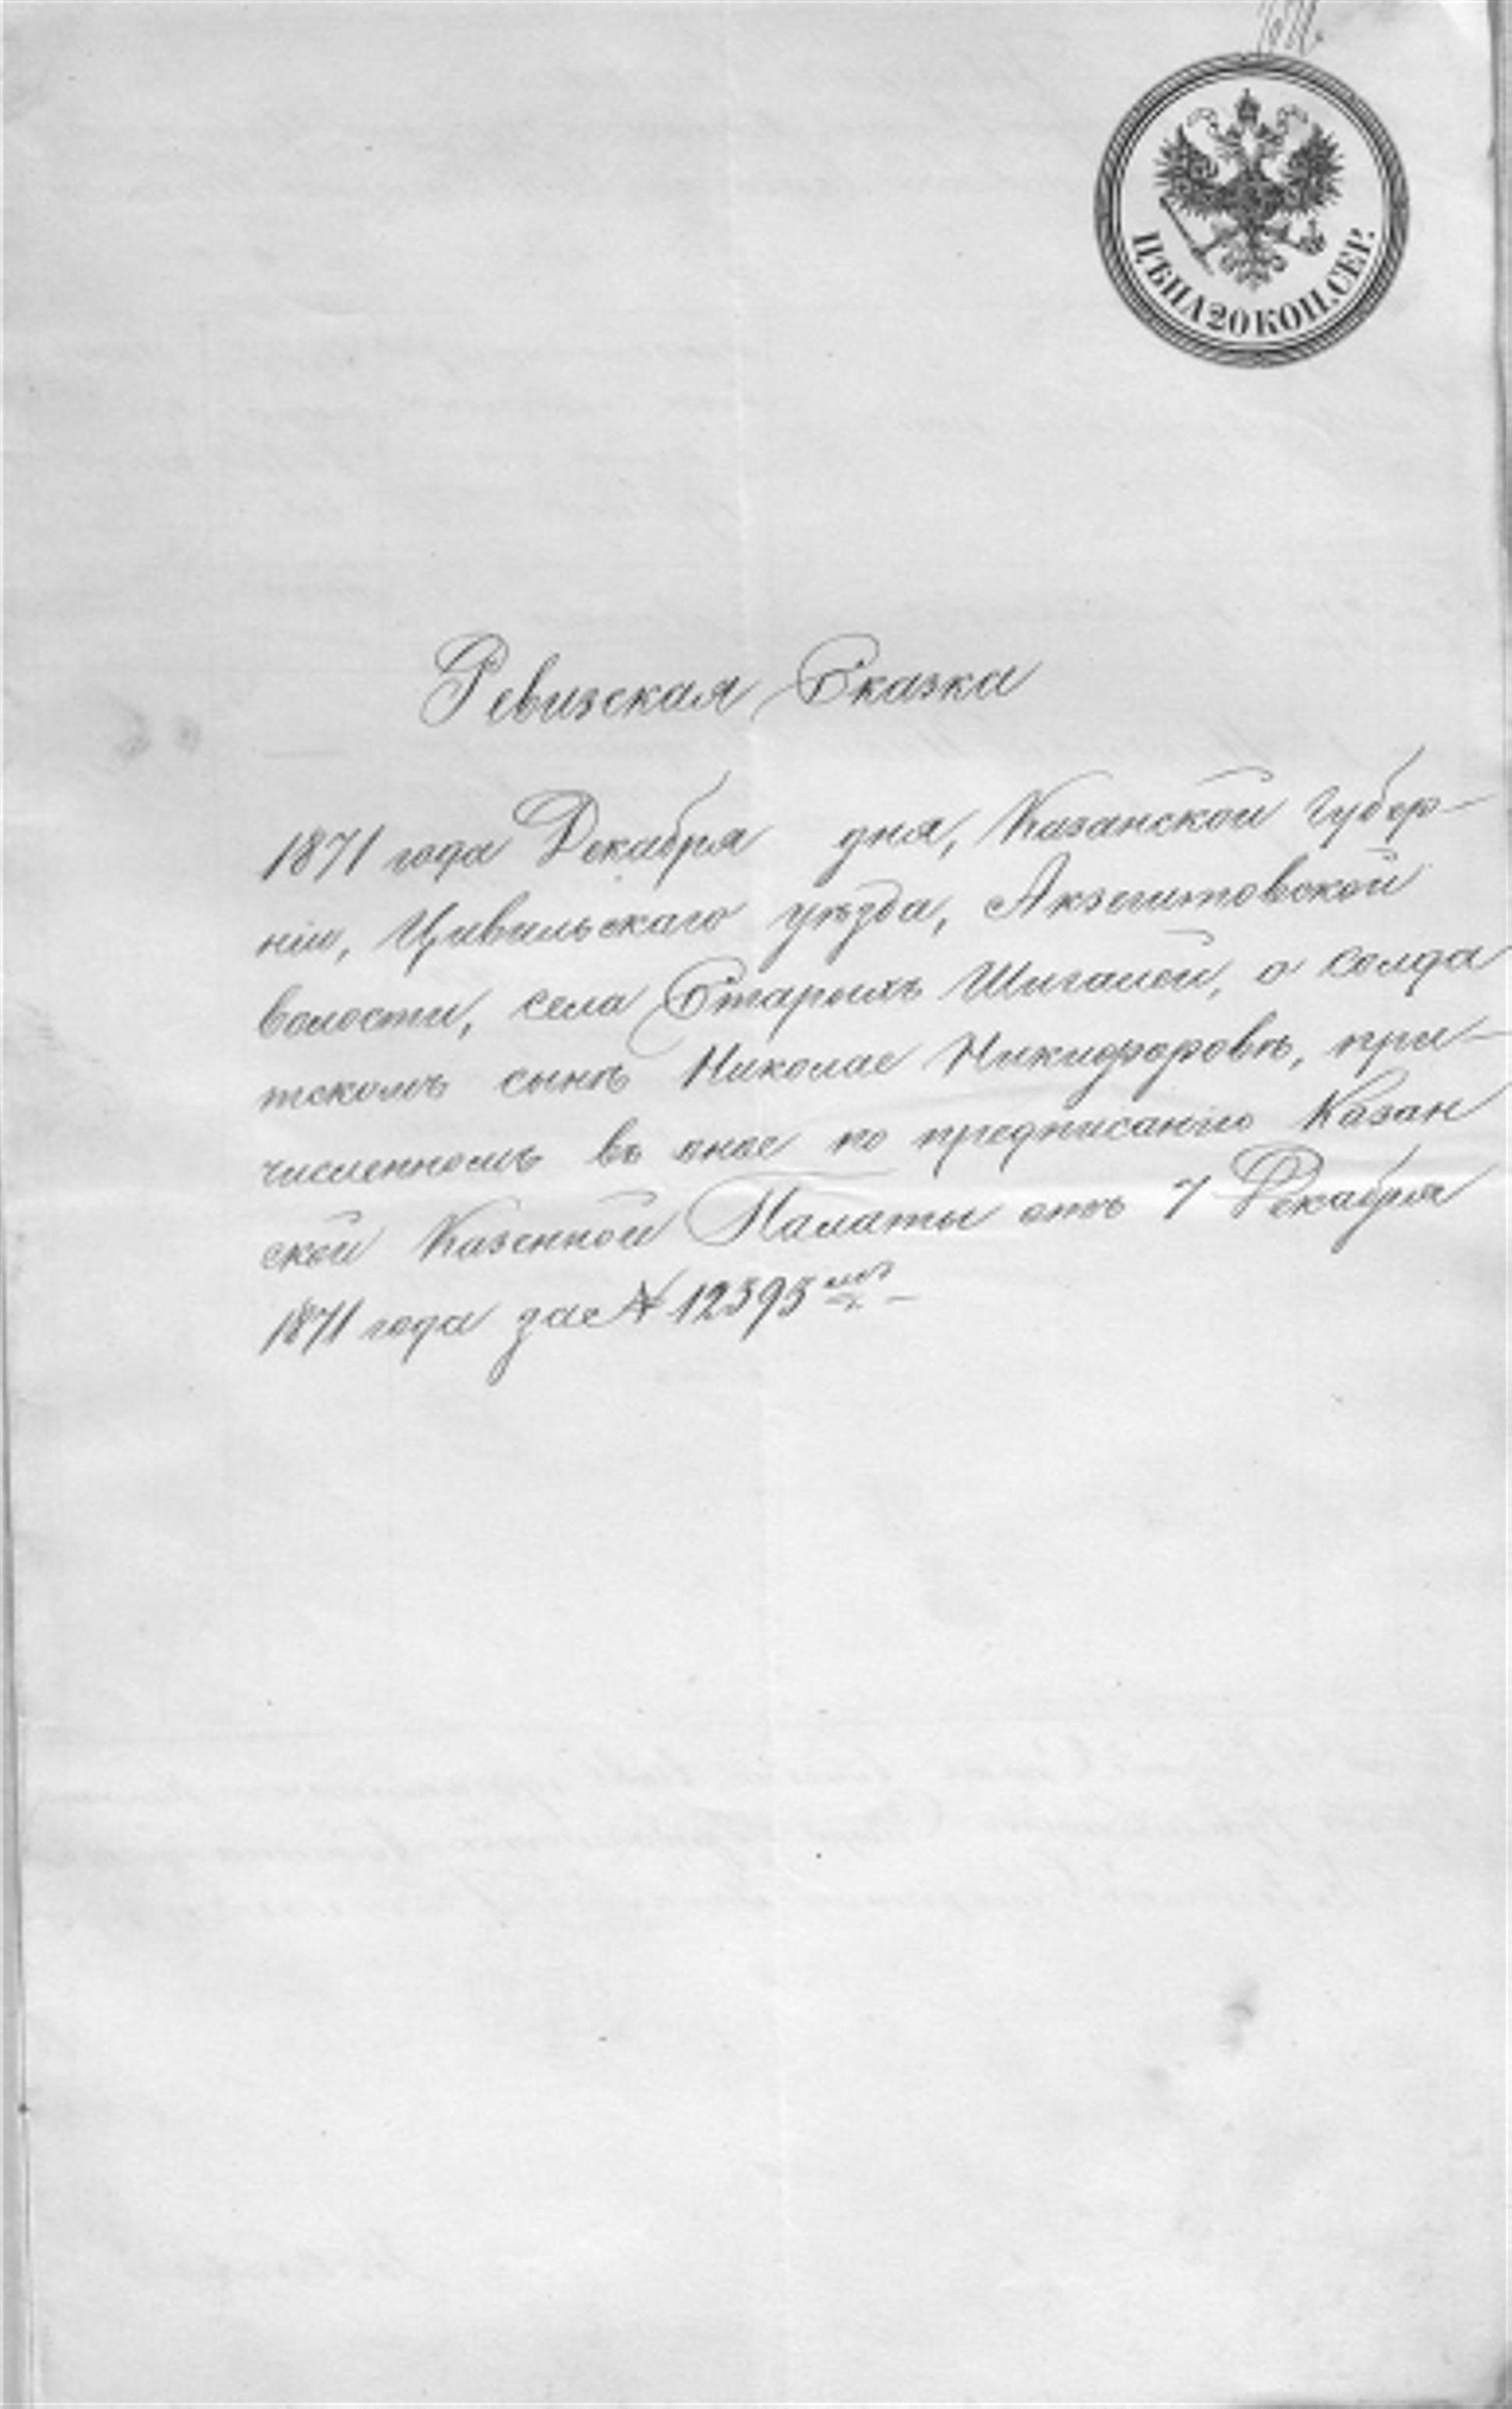 ЦѢНА 20 КОП. СЕР.
Ревизская Сказка
1871 года Декабря дня, Казанской Губер-
ніи, Цивильскаго уѣзда, Акзегитовской
волости, села Старыхъ Шигалей, о солда
тскомъ сынѣ Николае Никифоровѣ, при-
численномъ въ оное по предписанію Казан
ской Казенной Палаты отъ 7 Декабря
1871 года за №